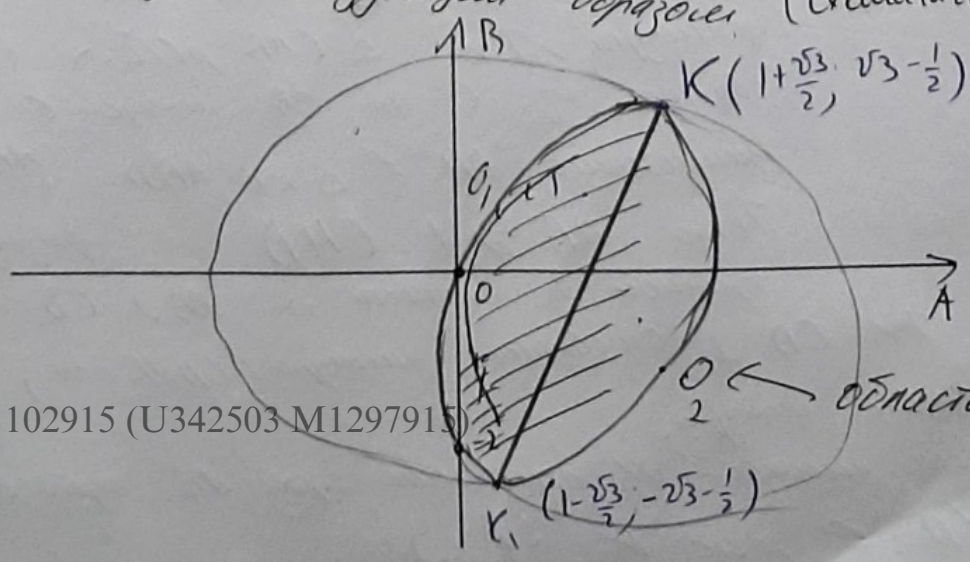 образом
B
K(1+√3/2; √3-1/2)
O₁
T
O
A
O
2
102915 (U342503 M1297915)
-2
K₁ (1-√3/2; -√3-1/2)